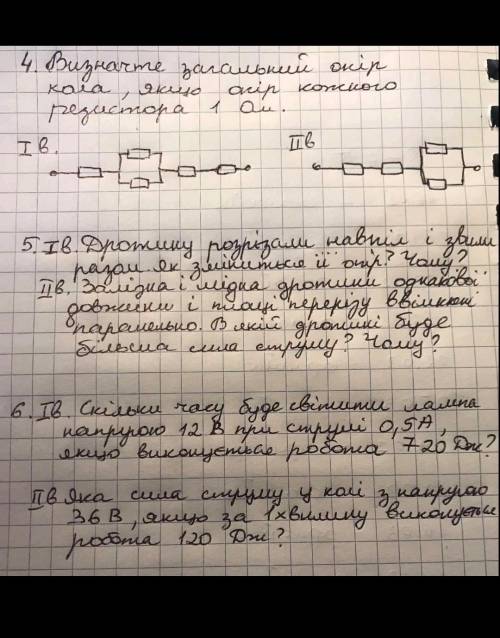 4. Визначте загальний опір
кола, якщо опір кожного
резистора 1 Ом.
I в.
II в
5. I в. Дротину розрізали навпіл і звили
разом. Як зміниться її опір? Чому?
II в. Залізна і мідна дротини однакової
довжини і площі перерізу ввімкнені
паралельно. В якій дротині буде
більша сила струму? Чому?
6. I в. Скільки часу буде світити лампа
напругою 12 В при струмі 0,5 А,
якщо виконується робота 720 Дж?
II в Яка сила струму у колі з напругою
36 В, якщо за 1 хвилину виконується
робота 120 Дж?